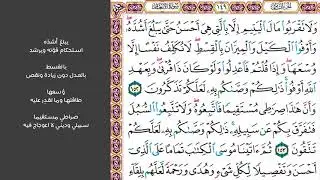 ١٤٩
وَلَا تَقْرَبُوا۟ مَالَ ٱلْيَتِيمِ إِلَّا بِٱلَّتِى هِىَ أَحْسَنُ حَتَّىٰ يَبْلُغَ أَشُدَّهُۥ
وَأَوْفُوا۟ ٱلْكَيْلَ وَٱلْمِيزَانَ بِٱلْقِسْطِ لَا نُكَلِّفُ نَفْسًا إِلَّا
وُسْعَهَا وَإِذَا قُلْتُمْ فَٱعْدِلُوا۟ وَلَوْ كَانَ ذَا قُرْبَىٰ وَبِعَهْدِ
ٱللَّهِ أَوْفُوا۟ ذَٰلِكُمْ وَصَّىٰكُم بِهِۦ لَعَلَّكُمْ تَذَكَّرُونَ ١٥٢
وَأَنَّ هَٰذَا صِرَٰطِى مُسْتَقِيمًا فَٱتَّبِعُوهُ وَلَا تَتَّبِعُوا۟ ٱلسُّبُلَ
فَتَفَرَّقَ بِكُمْ عَن سَبِيلِهِۦ ذَٰلِكُمْ وَصَّىٰكُم بِهِۦ لَعَلَّكُمْ
تَتَّقُونَ ١٥٣ ثُمَّ ءَاتَيْنَا مُوسَى ٱلْكِتَٰبَ تَمَامًا عَلَى ٱلَّذِىٓ
أَحْسَنَ وَتَفْصِيلًا لِّكُلِّ شَىْءٍ وَهُدًى وَرَحْمَةً لَّعَلَّهُم بِلِقَآءِ
يبلغ أشده
استحكام قوته ويرشد
بالقسط
بالعدل دون زيادة ونقص
وسعها
طاقتها وما تقدر عليه
صراطي مستقيما
سبيلي وديني لا اعوجاج فيه